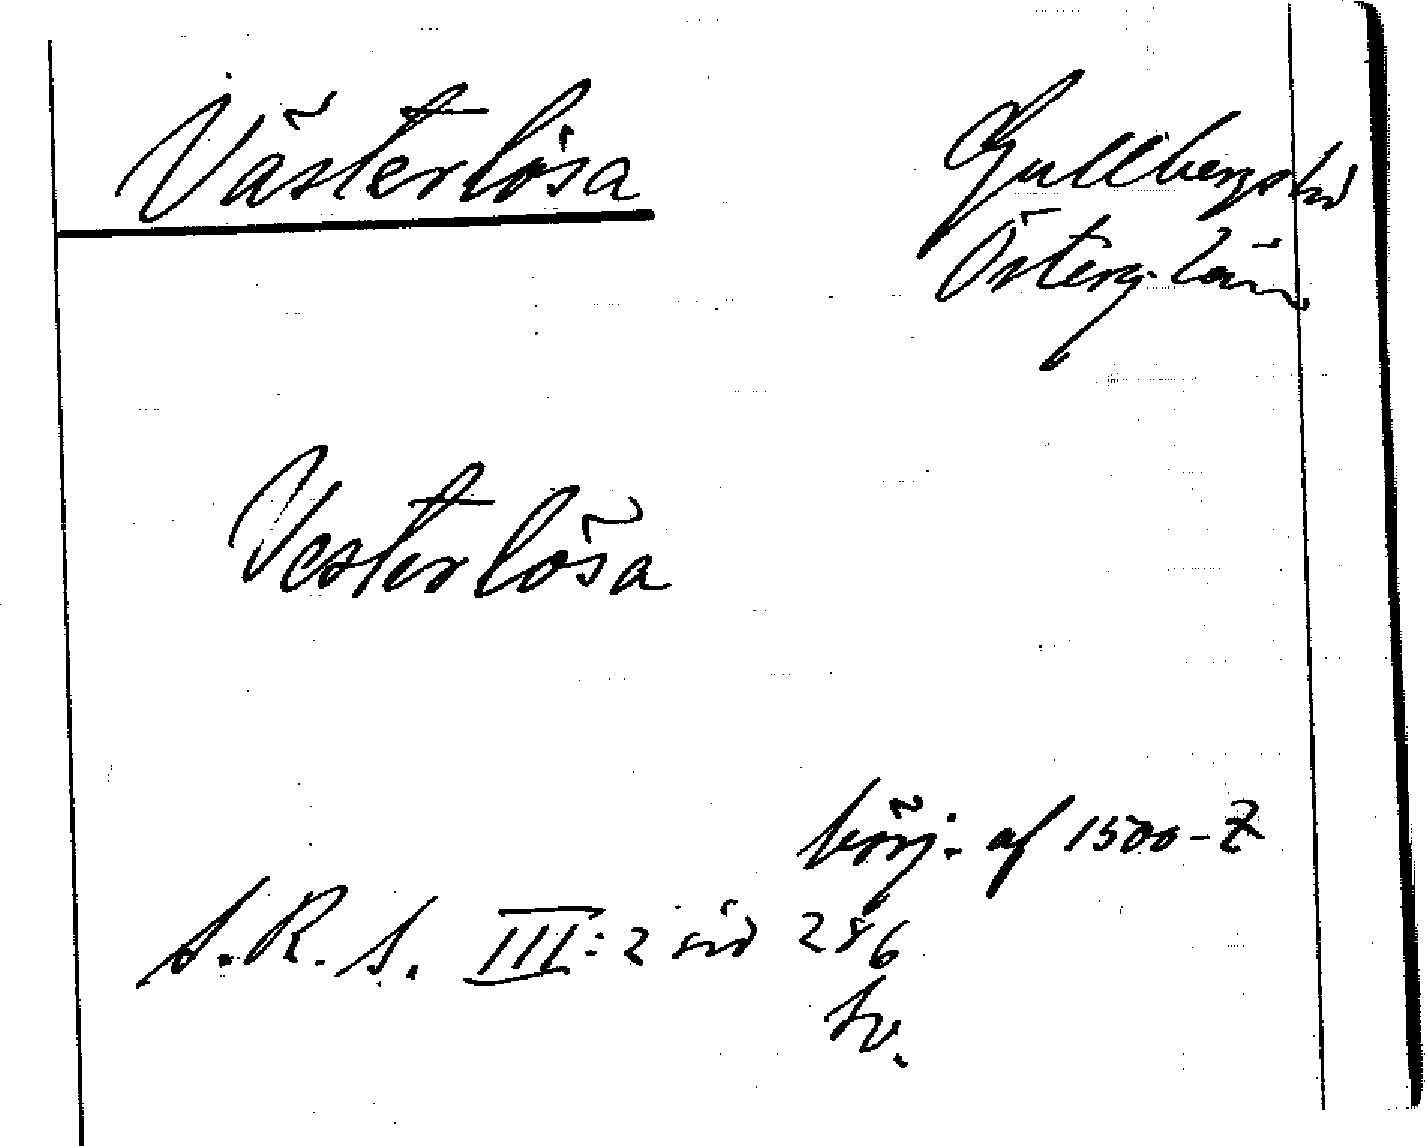 Västerlösa
Gullbergs hd
Österg. län
Vesterlösa
börj. af 1500-t
S.R.S. III:2 sid 256
hv.